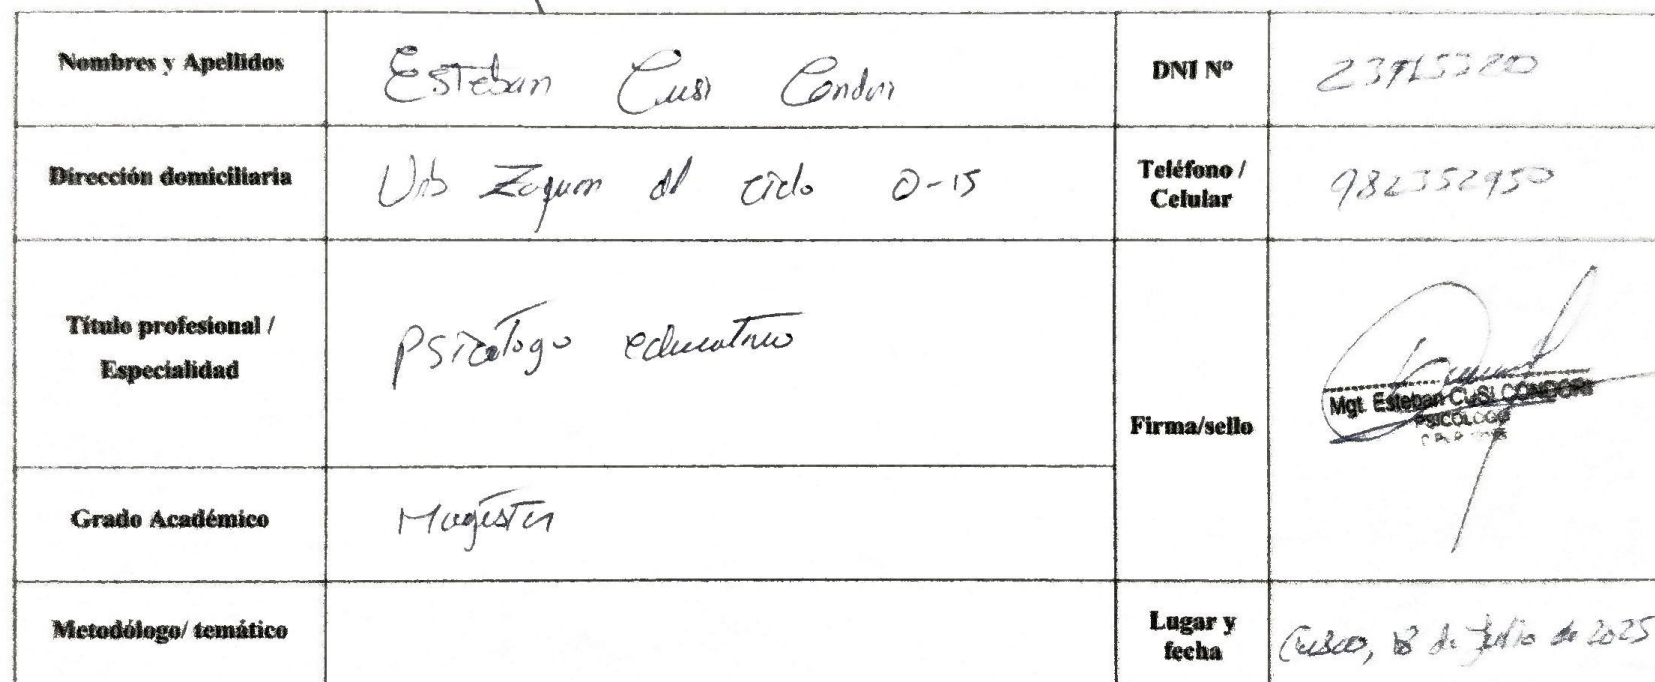 Nombres y Apellidos
Esteban Cusi Condori
DNI Nº
Dirección domiciliaria
Urb Zaguan del cielo O-15
Teléfono /
Celular
982352950
Título profesional /
Especialidad
Psicólogo educativo
Firma/sello
Mgt. Esteban CUSI CONDORI
PSICOLOGO
Grado Académico
Magister
Metodólogo/ temático
Lugar y
fecha
Cusco, 18 de Julio de 2025